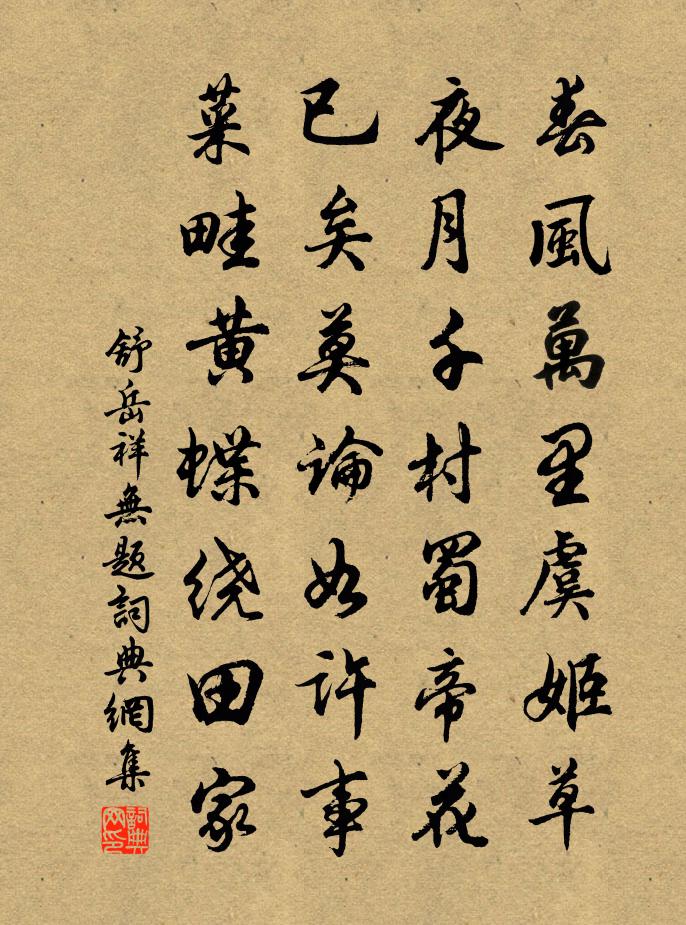 春風萬里虞姬草
夜月千村蜀帝花
已矣莫論如許事
菜畦黄蝶绕田家
舒岳祥無題詞典網集
詞典网印